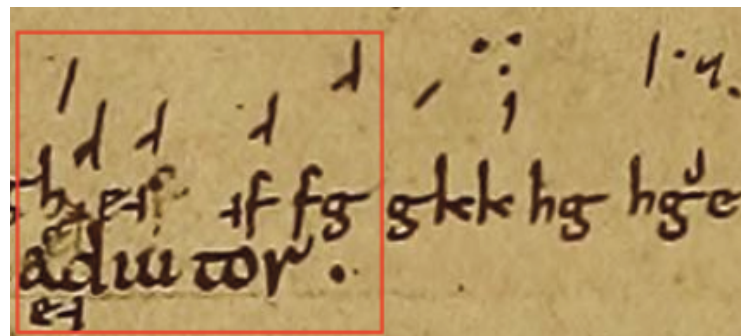 h e⊣ f ⊣f fg gkk hg hg e
adiutor.
e⊣